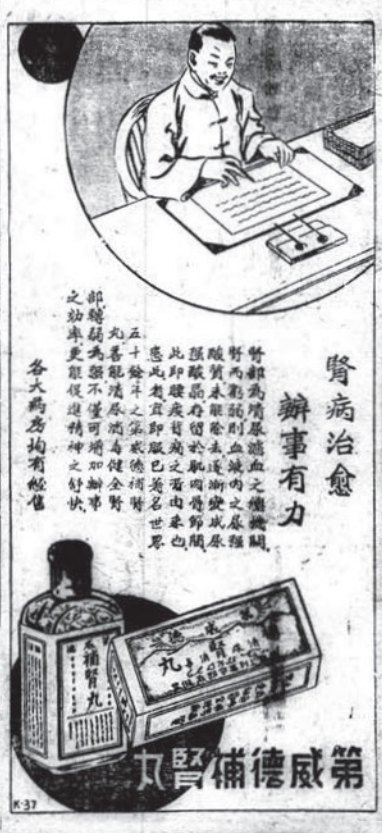 腎病治愈
辦事有力
腎部為清尿濾血之總機關
腎而衰弱則血液內之尿强
酸質未能除去逐漸變成尿
强酸晶存留於肌肉骨節間
此即腰痠背痛之所由來也
患此者宜即服已著名世界
五十餘年之第威德補腎
丸善能清尿消毒健全腎
部轉弱為强不僅可增加辦事
之効率更能促進精神之舒快
各大药房均有經售
補腎丸
第威德補腎丸
K-37